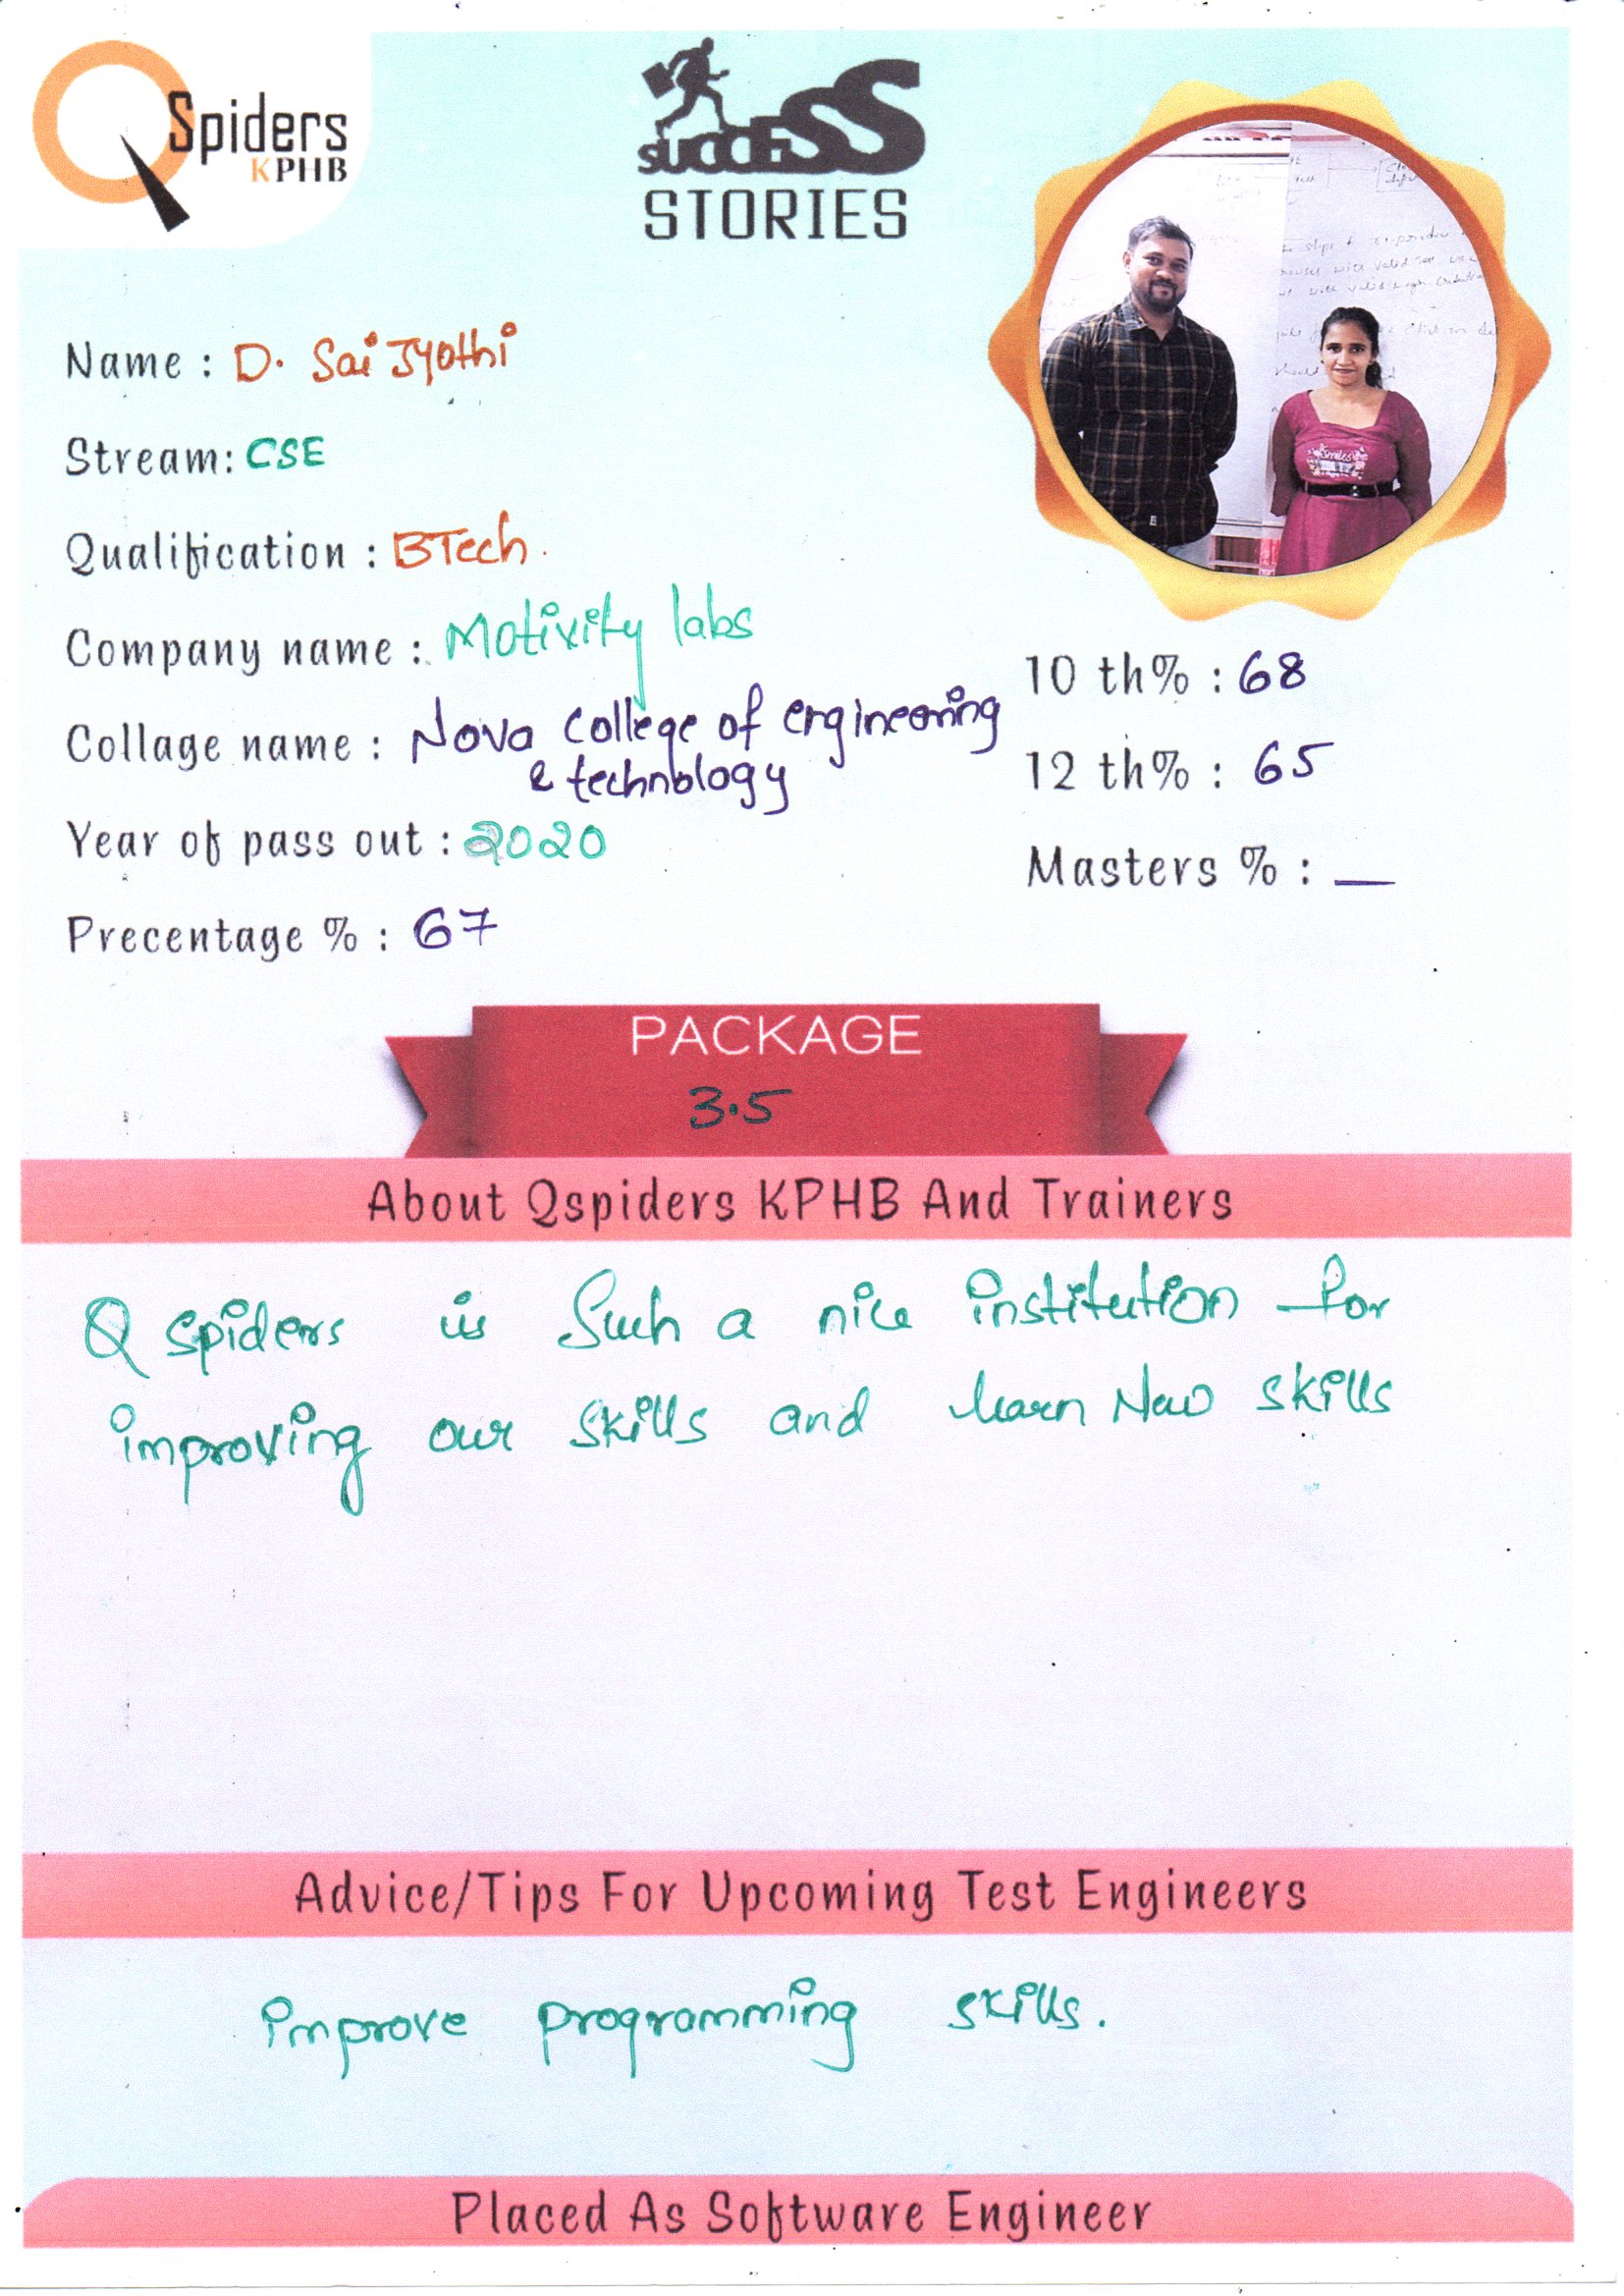 QSpiders
KPHB
SUCCESS
STORIES
Name : D. Sai Jyothi
Stream: CSE
Qualification : BTech.
Company name : Motivity labs
Collage name : Nova college of engineering
& technology
Year of pass out : 2020
Precentage % : 67
10 th% : 68
12 th% : 65
Masters % : —
PACKAGE
3.5
About Qspiders KPHB And Trainers
Q spiders is Such a nice institution for
improving our skills and learn New skills
Advice/Tips For Upcoming Test Engineers
improve programming skills.
Placed As Software Engineer